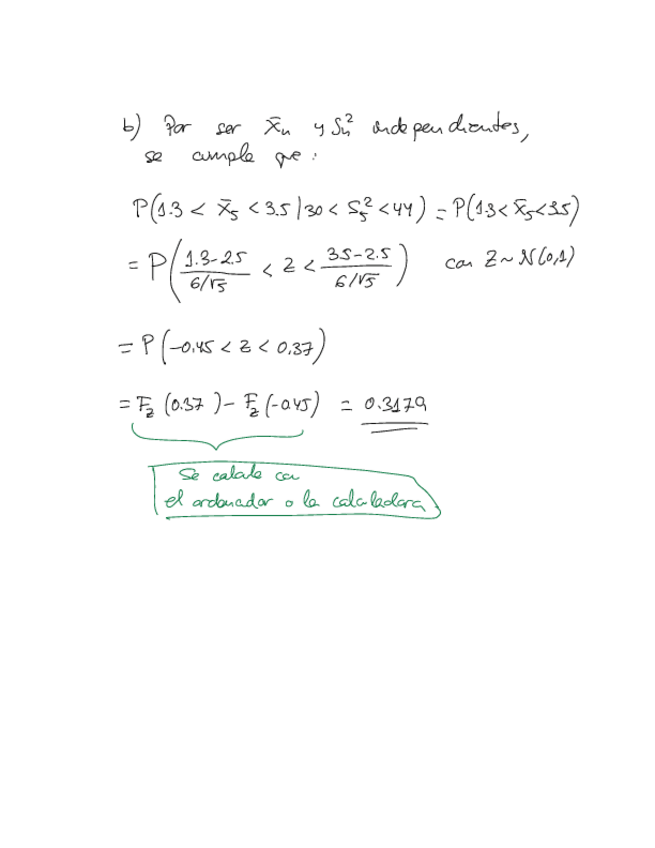 b) Por ser X̄ₙ y Sₙ² independientes,
se cumple que:
P(1.3 < X̄₅ < 3.5 | 30 < S₅² < 44) = P(1.3 < X̄₅ < 3.5)
= P( (1.3-2.5)/(6/√5) < Z < (3.5-2.5)/(6/√5) ) con Z ~ N(0,1)
= P(-0.45 < Z < 0.37)
= F_Z (0.37) - F_Z (-0.45) = 0.3179
Se calcula con
el ordenador o la calculadora